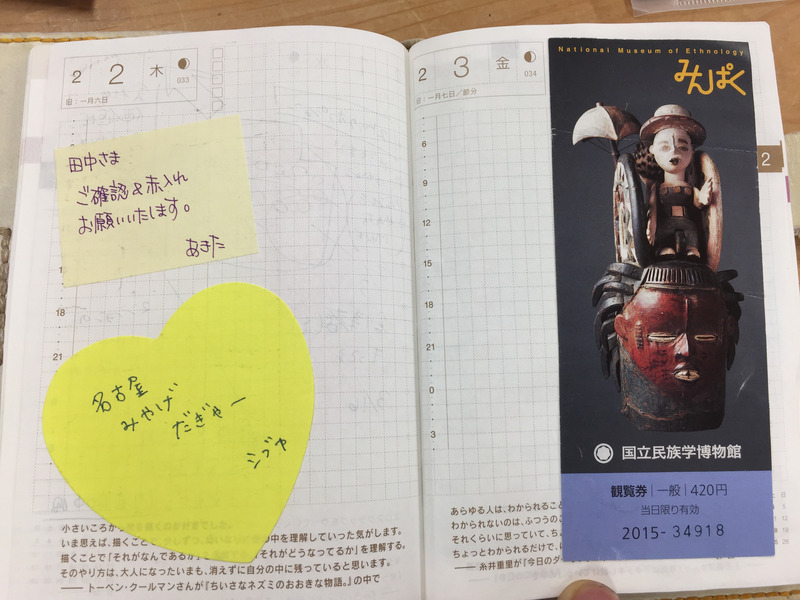 2 2 木 033
旧：一月六日
田中さま
ご確認&赤入れ
お願いいたします。
あきた
18
21
名古屋
みやげ
だぎゃー
シブヤ
小さいころか
いま思えば、描くことで
中を理解していった気がします。
描くことで「それがなんであるか
「それがどうなってるか」を理解する。
そのやり方は、大人になったいまも、消えずに自分の中に残っていると思います。
——トーベン・クールマンさんが『ちいさなネズミのおおきな物語。』の中で
2 3 金 034
旧：一月七日／節分
6
9
12
18
21
0
3
あらゆる人は、わかられること
わかられないのは、ふつうのこ
それくらいに思っていて、ち
ちょっとわかられるだけで、
——糸井重里が『今日のダ
National Museum of Ethnology
みんぱく
国立民族学博物館
観覧券 一般 420円
当日限り有効
2015-34918
2